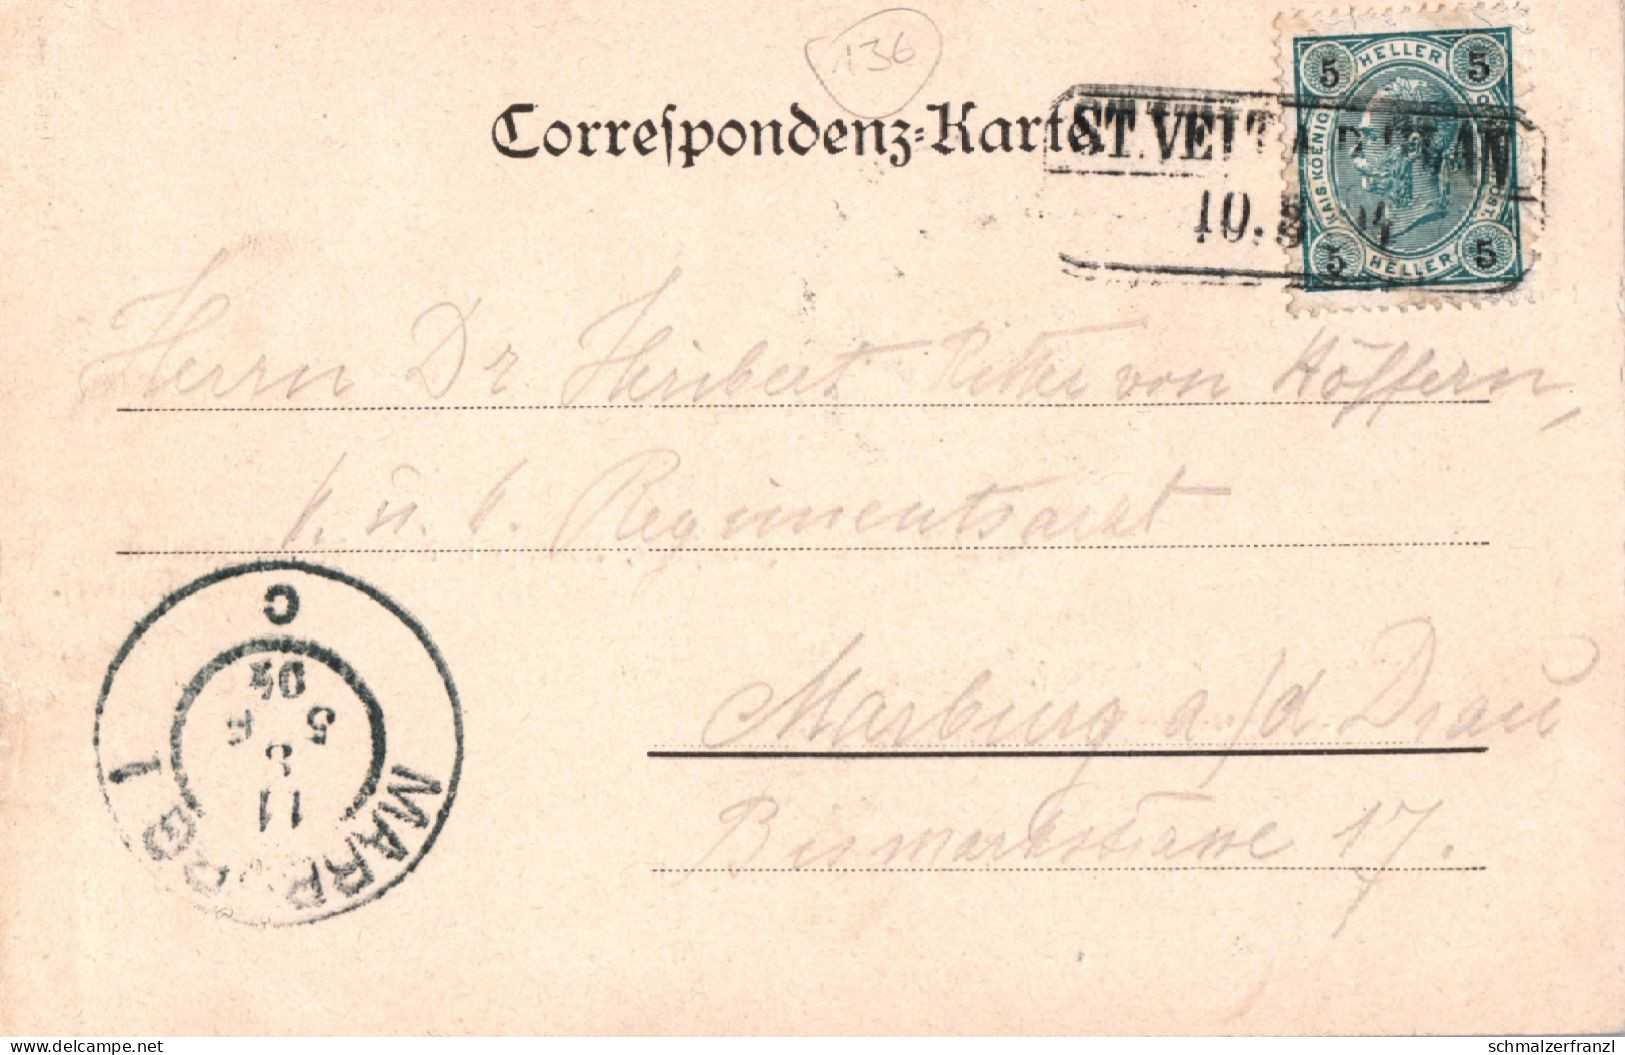 136
Correſpondenz-Karte
ST. VEIT A.D. GLAN
10. 3 04
5 HELLER 5
KAIS. KOENIGL. OEST. POST
5 HELLER 5
Herrn Dr Heribert Ritter von Höffern,
k. u. k. Regimentsarzt
Marburg a/d Drau
Bismarckstrasse 17.
MARBURG 1
11
3
5 F
04
C
www.delcampe.net
schmalzerfranzl